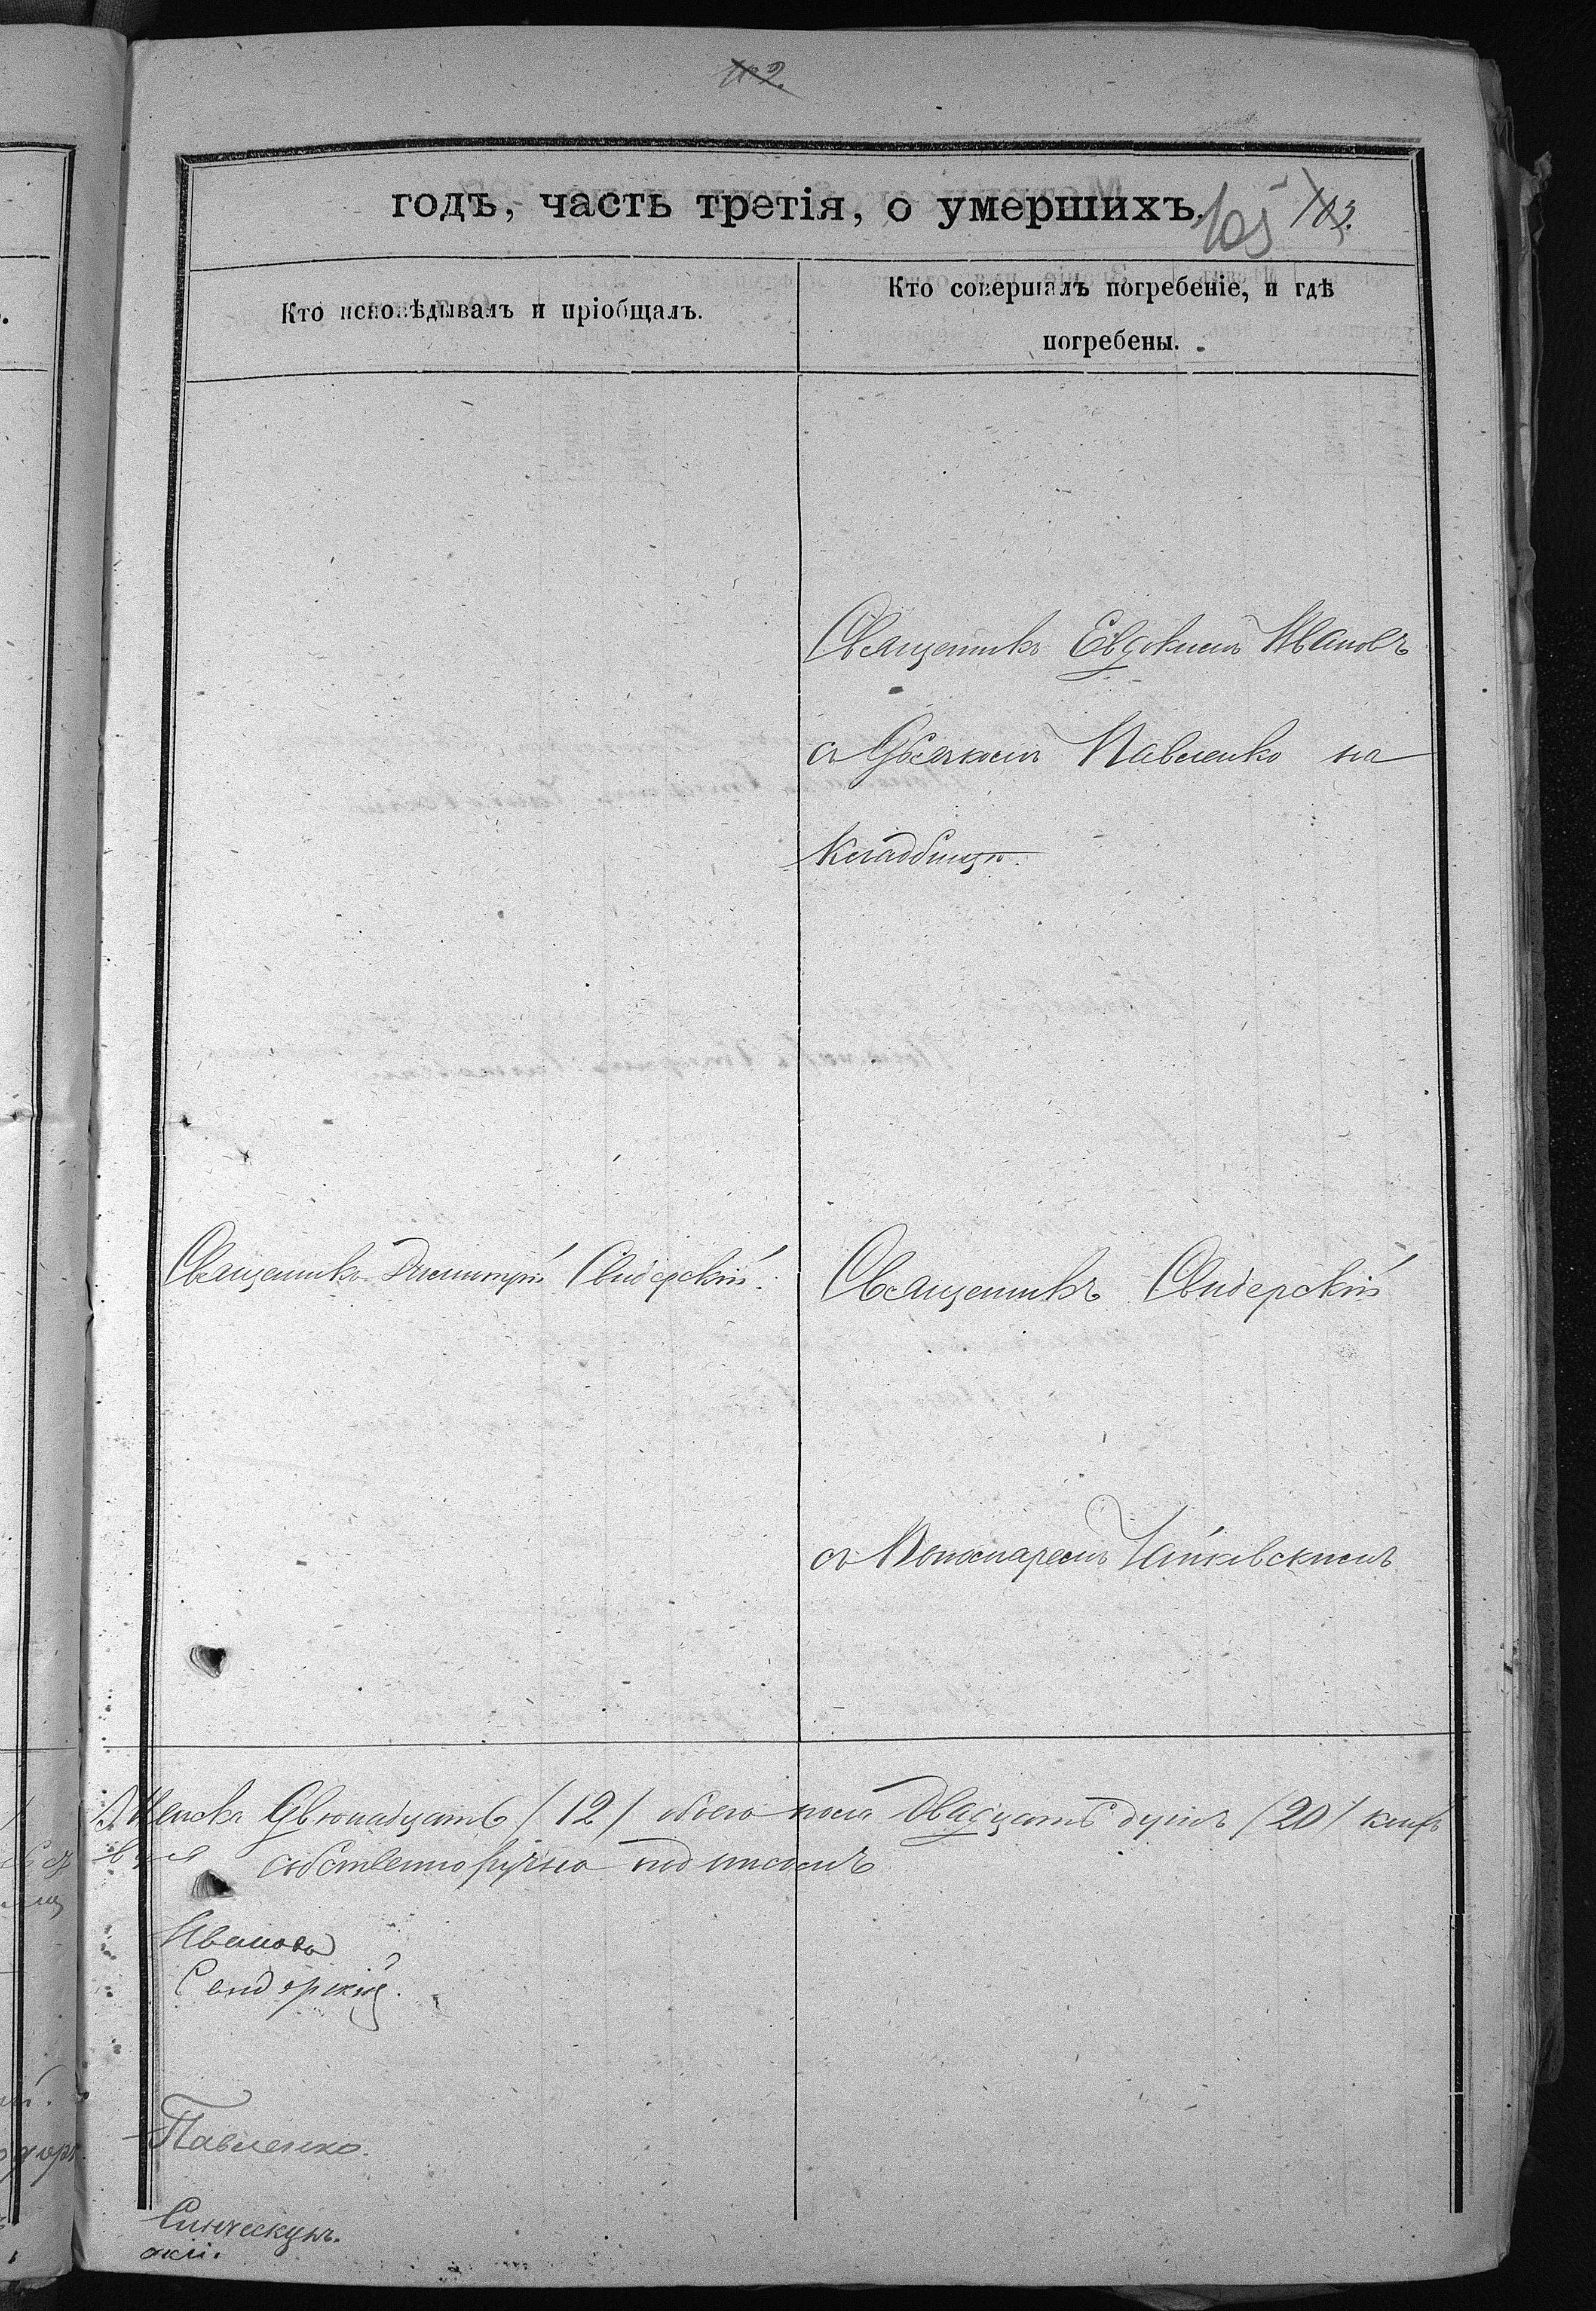 годъ, часть третія, о умершихъ.
105 103.
Кто исповѣдывалъ и пріобщалъ.
Кто совершалъ погребеніе, и гдѣ
погребены.
Священникъ Евдокимъ Ивановъ
съ Дьячкомъ Павленко на
кладбищѣ.
Священникъ Димитрій Свидерскій.
Священникъ Свидерскій
съ Пономаремъ Чайковскимъ
Женска двѣнадцать (12) обоего пола двадцать душъ (20)
собственноручно подписомъ
Ивановъ
Свидерскій.
Павленко.